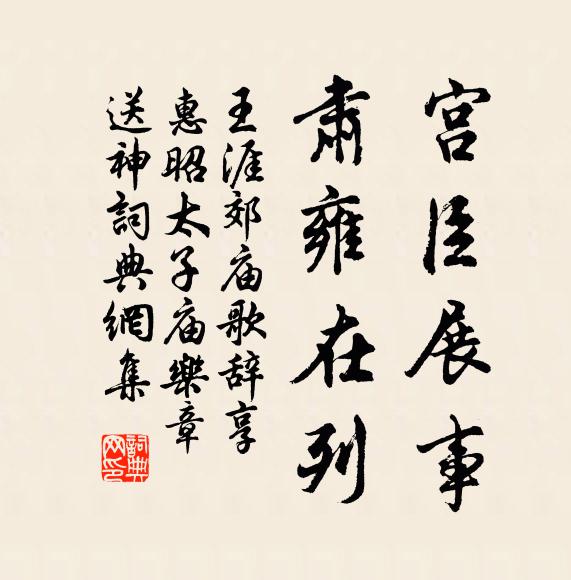 宫臣展事
肃雍在列
王涯郊庙歌辞享
惠昭太子庙樂章
送神詞典網集
詞典网印